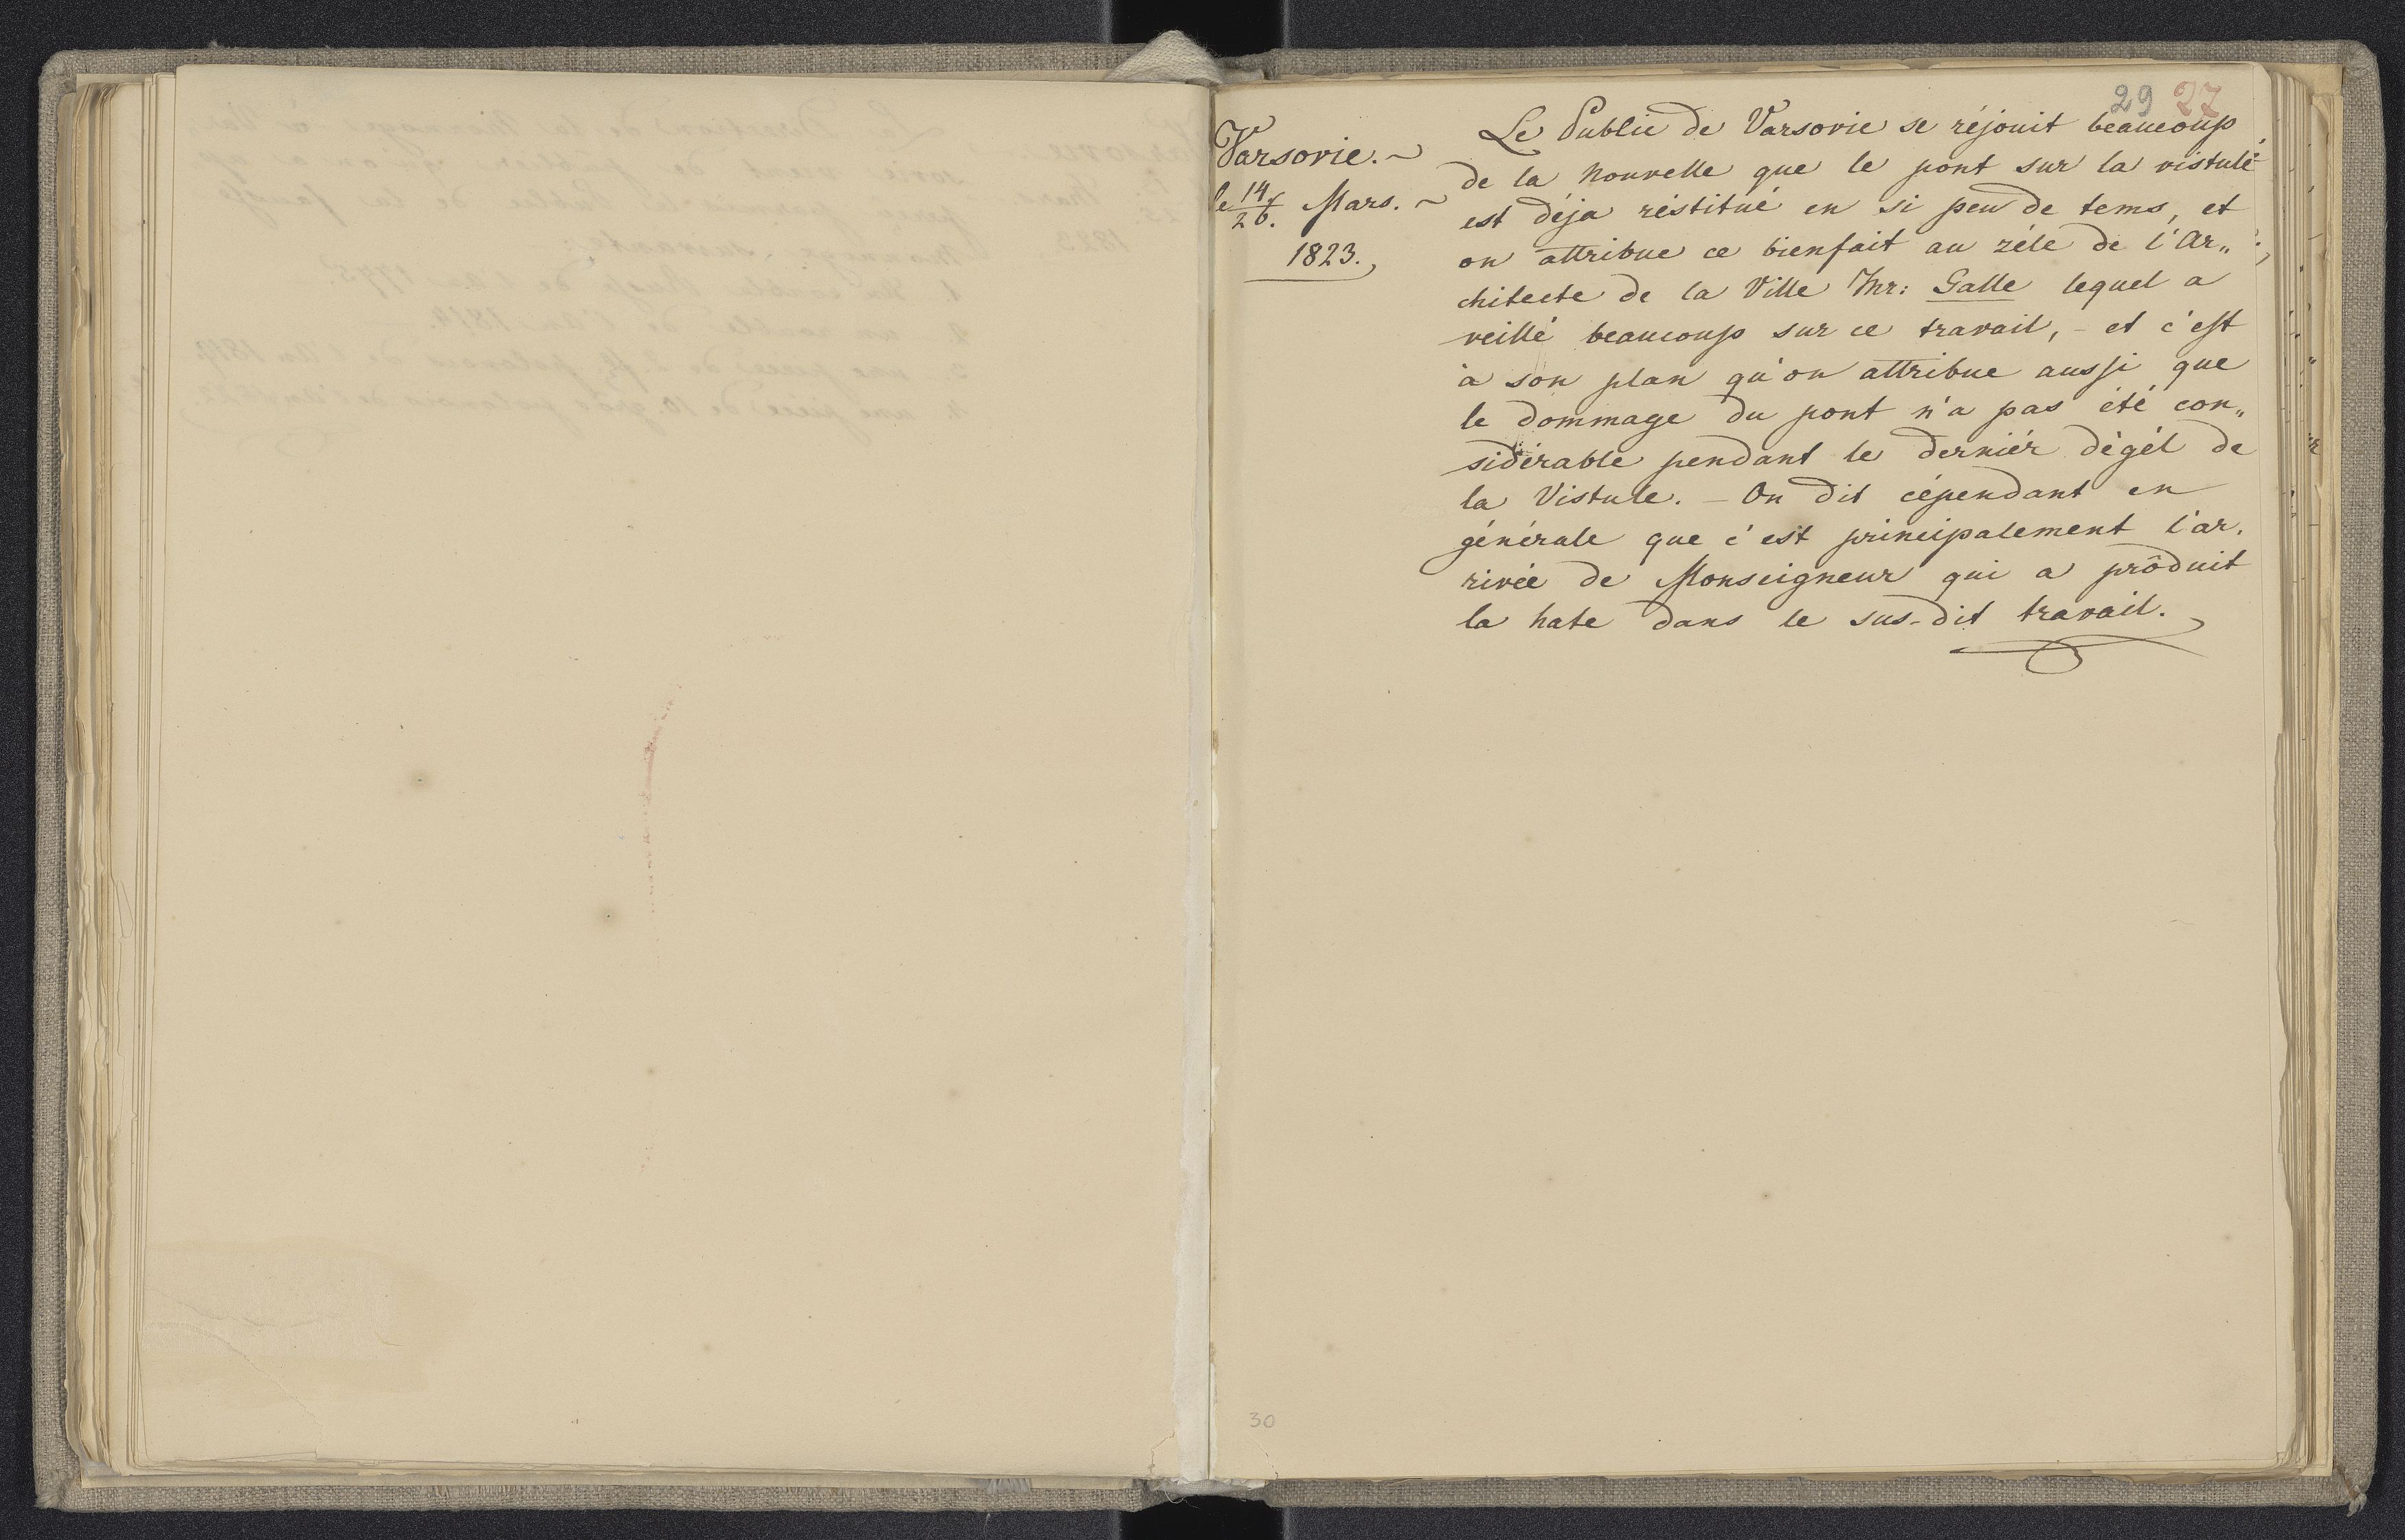 29 27
Varsovie. ~
le 14/26. Mars. ~
1823.
Le Public de Varsovie se réjouit beaucoup
de la nouvelle que le pont sur la vistule
est déja réstitué en si peu de tems, et
on attribue ce bienfait au zéle de l'Ar„
chitecte de la Ville Mr: Galle lequel a
veillé beaucoup sur ce travail, - et c'est
à son plan qu'on attribue aussi que
le dommage du pont n'a pas été con„
sidérable pendant le derniér dégél de
la Vistule. — On dit cépendant en
générale que c'est principalement l'ar.
rivée de Monseigneur qui a prôduit
la hate dans le sus-dit travail.
30